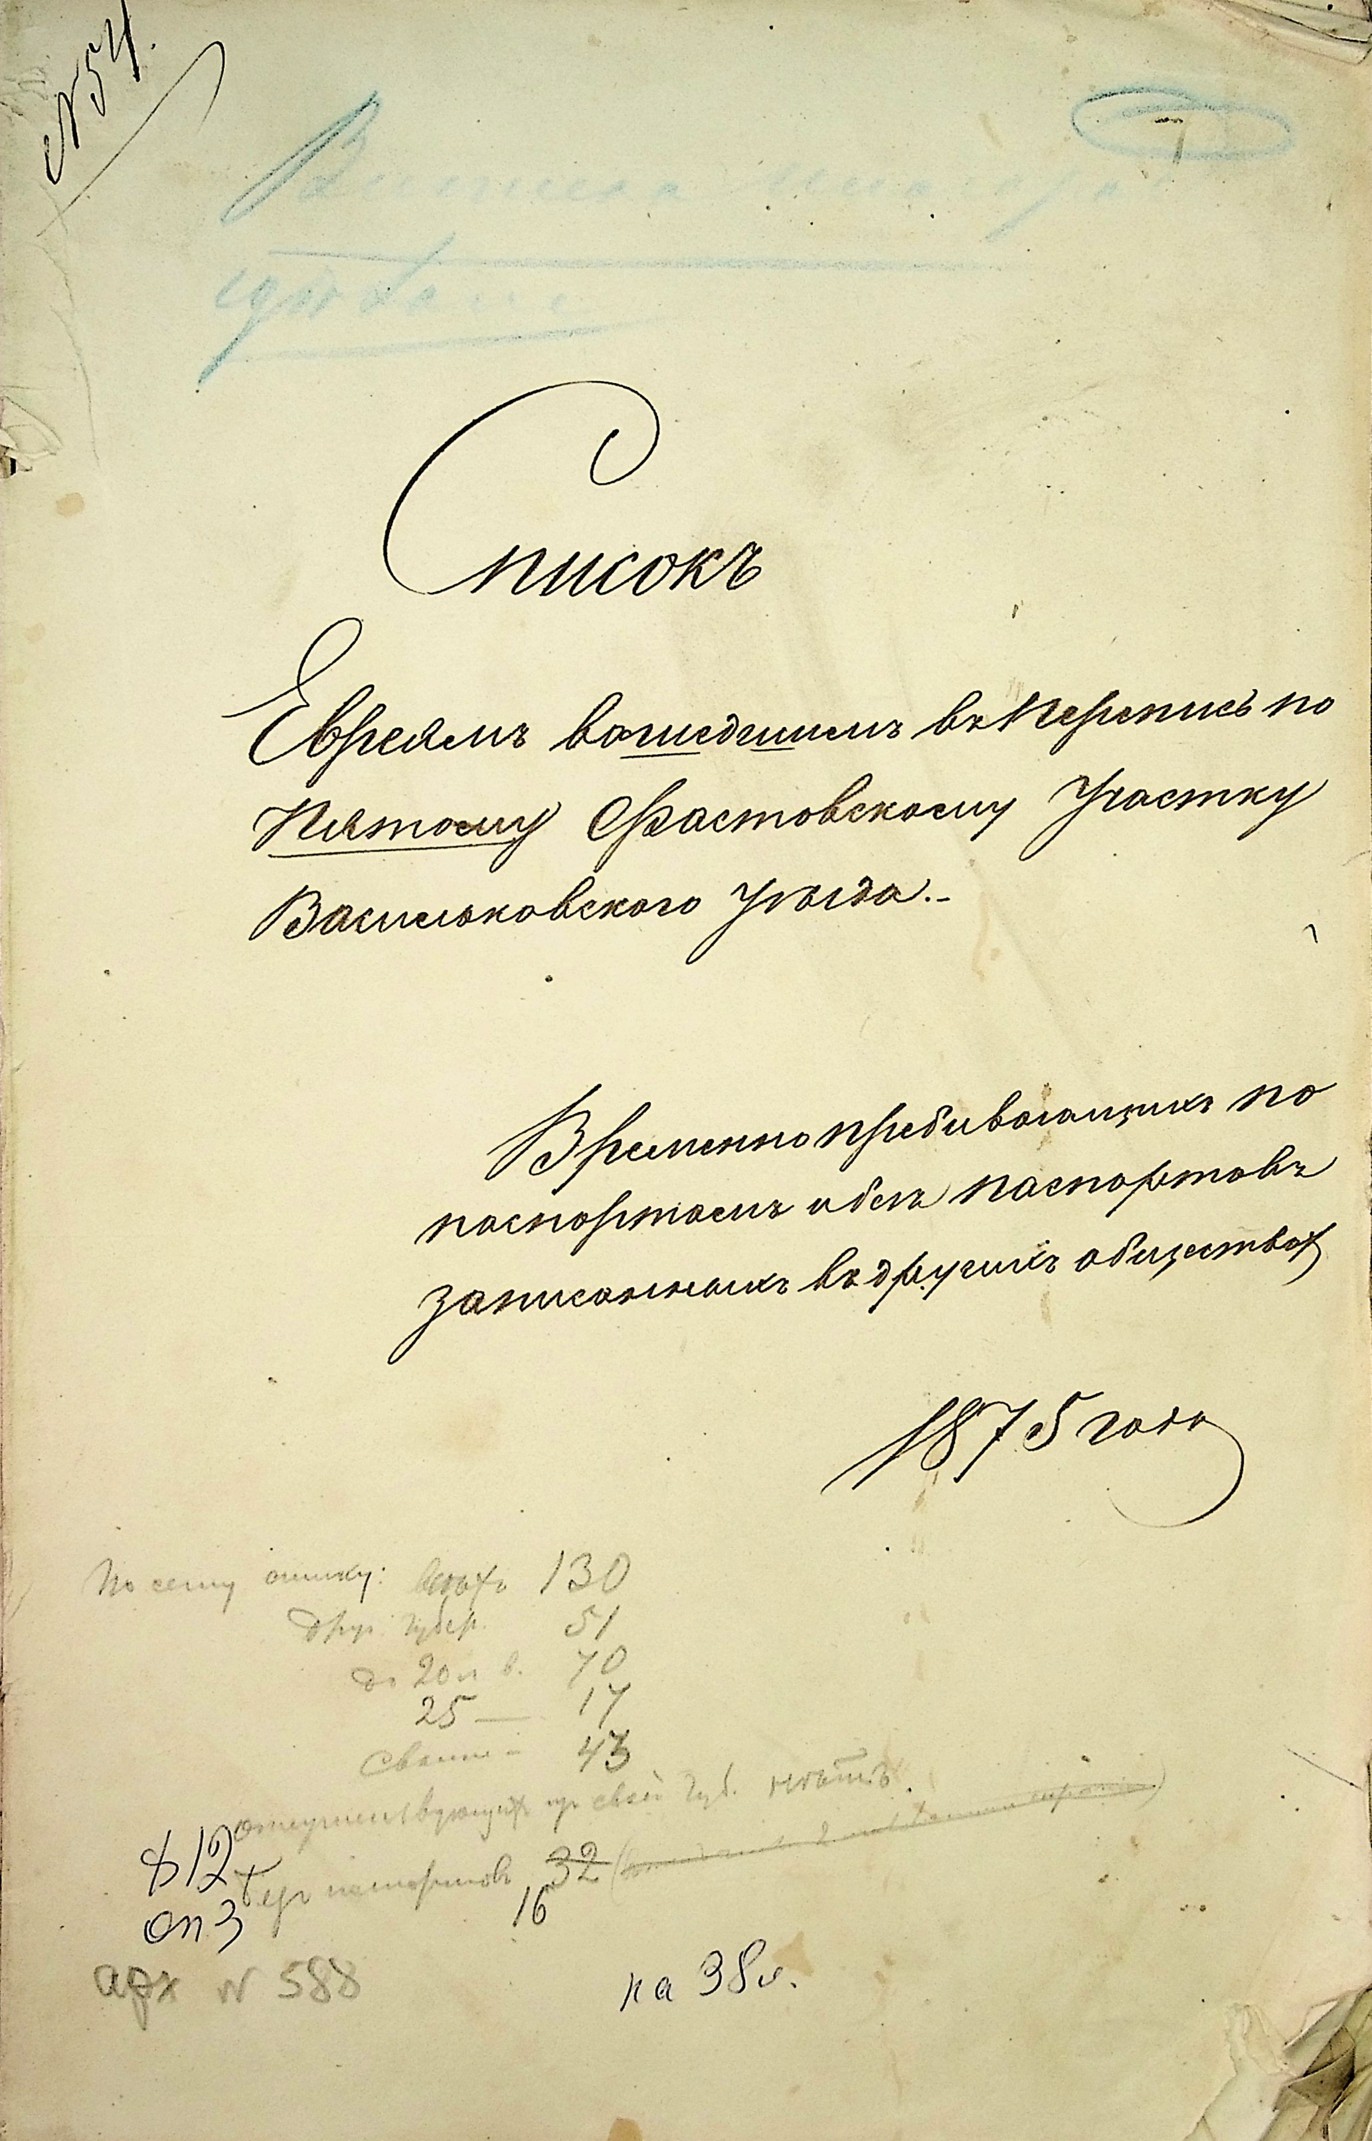 № 54.
7
Списокъ
Евреямъ вошедшимъ въ Перепись по
Пятому Фастовскому Участку
Васильковского Уѣзда.-
Временно пребивающихъ по
паспортамъ и безъ паспортовъ
записанныхъ въ другихъ обществах
1875 года
По сему списку: всѣхъ 130
друг. губер. 51
до 20 л. в. 70
25 — 17
Свыше - 43
отсутствующихъ въ своей губ. нѣтъ.
безъ паспортовъ 32
16
ф 12
оп 3
арх № 588
на 38 л.